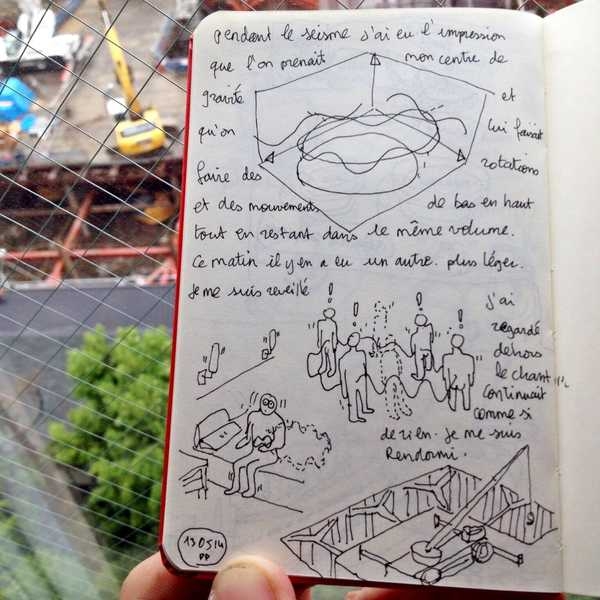 pendant le seisme j'ai eu l'impression
que l'on prenait mon centre de
gravité et
qu'on lui faisait
faire des rotations
et des mouvements de bas en haut
tout en restant dans le même volume.
Ce matin il y en a eu un autre. plus léger.
Je me suis reveillé
! ! ! ! !
j'ai
regardé
dehors
le chant
continuait
comme si
de rien. Je me suis
Rendormi.
130514
PP